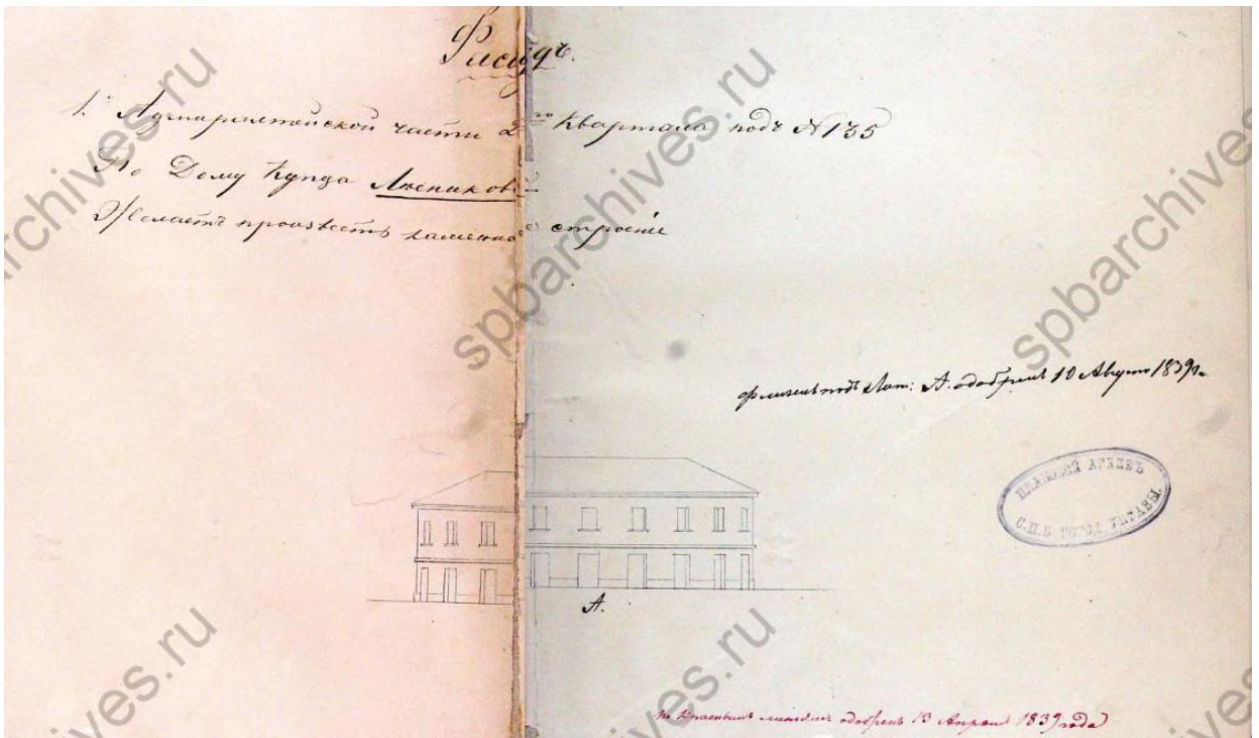 Фасадъ.
1й Адмиралтейской части 2го Квартала подъ № 135
По Дому Купца
Желаетъ произвесть каменное строение
подъ Лит: А. одобренъ 10 Август 1839г.
ПЛАНОВОЙ АРХИВЪ
С.П.Б. ГОРОД. УПРАВЫ.
А.
по красным линиям одобренъ 13 Апреля 1839 года
spbarchives.ru